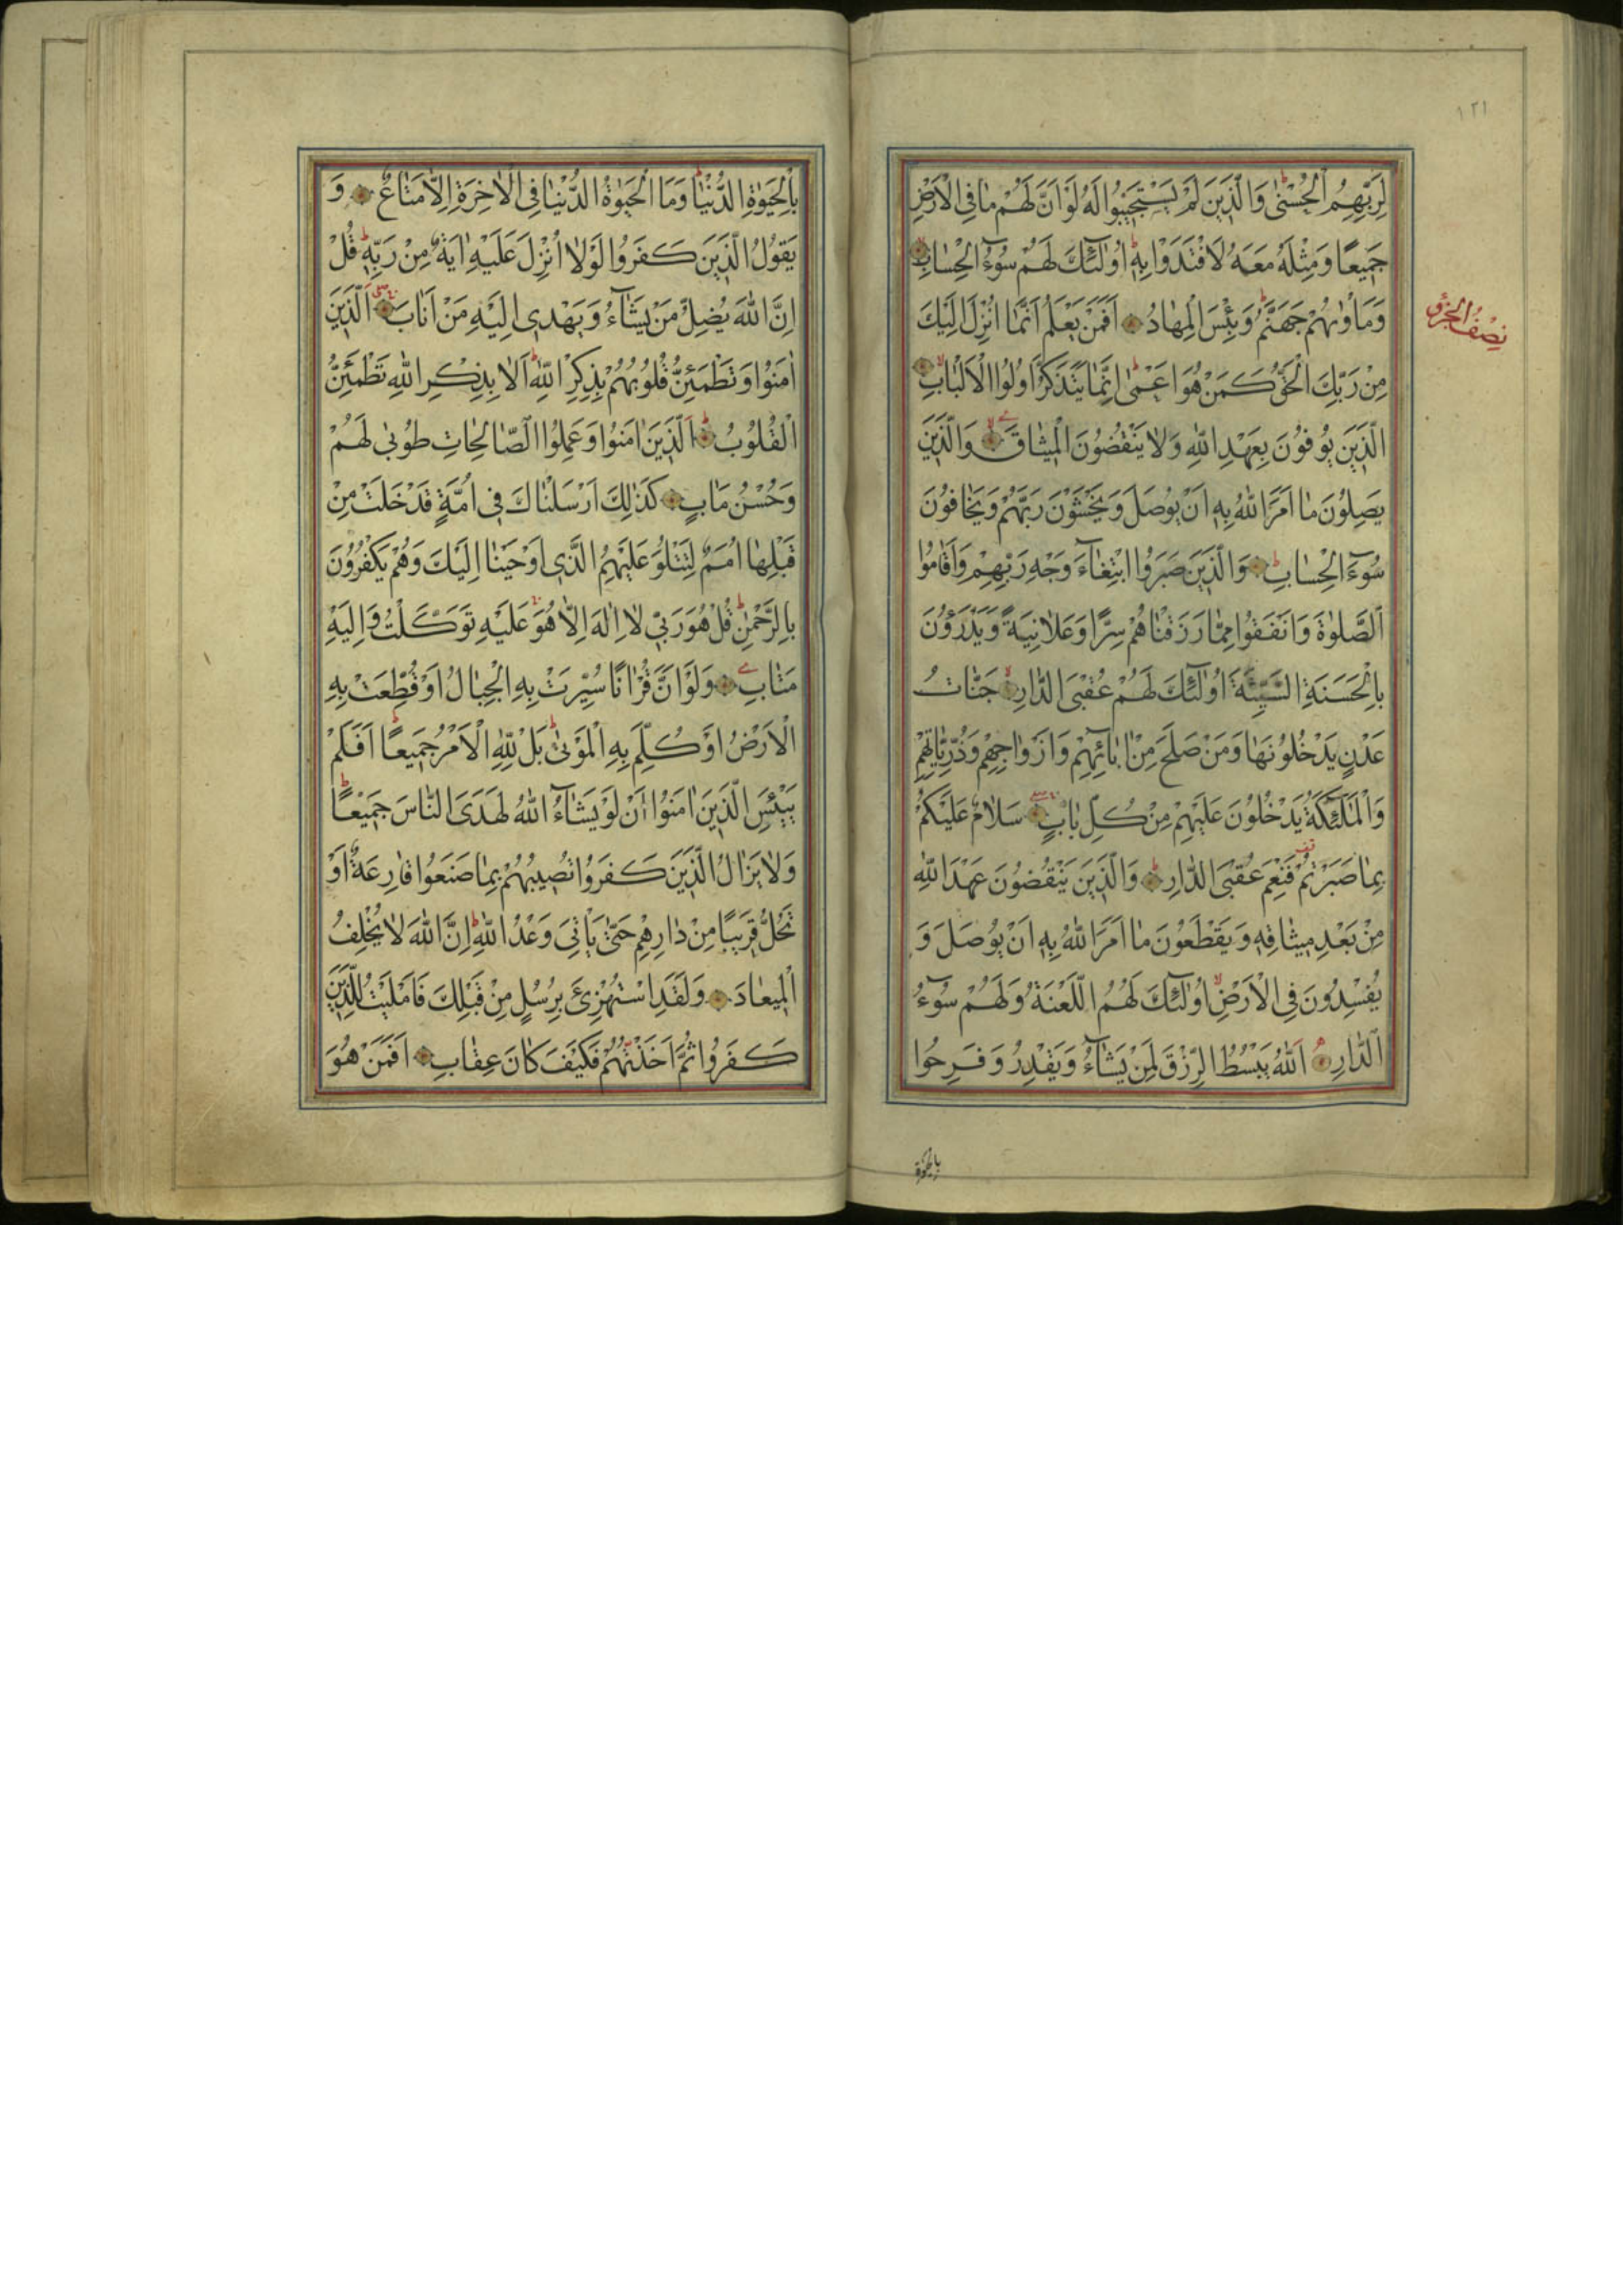 ١٢١
لِرَبِّهِمُ الْحُسْنٰى وَالَّذِينَ لَمْ يَسْتَجِيبُوا لَهُ لَوْ اَنَّ لَهُمْ مٰا فِى الْاَرْضِ
جَمِيعًا وَمِثْلَهُ مَعَهُ لَافْتَدَوْا بِهِ اُولٰٓئِكَ لَهُمْ سُوٓءُ الْحِسٰابِ
وَمَاْوٰيهُمْ جَهَنَّمُ وَبِئْسَ الْمِهٰادُ اَفَمَنْ يَعْلَمُ اَنَّمٰا اُنْزِلَ اِلَيْكَ
نِصْفُ الْجُزْؤِ
مِنْ رَبِّكَ الْحَقُّ كَمَنْ هُوَ اَعْمٰى اِنَّمٰا يَتَذَكَّرُ اُولُوا الْاَلْبٰابِ
الَّذِينَ يُوفُونَ بِعَهْدِ اللّٰهِ وَلٰا يَنْقُضُونَ الْمِيثٰاقَ وَالَّذِينَ
يَصِلُونَ مٰا اَمَرَ اللّٰهُ بِهِ اَنْ يُوصَلَ وَيَخْشَوْنَ رَبَّهُمْ وَيَخٰافُونَ
سُوٓءَ الْحِسٰابِ وَالَّذِينَ صَبَرُوا ابْتِغٰٓاءَ وَجْهِ رَبِّهِمْ وَاَقٰامُوا
الصَّلٰوةَ وَاَنْفَقُوا مِمّٰا رَزَقْنٰاهُمْ سِرًّا وَعَلٰانِيَةً وَيَدْرَؤُنَ
بِالْحَسَنَةِ السَّيِّئَةَ اُولٰٓئِكَ لَهُمْ عُقْبَى الدّٰارِ جَنّٰاتُ
عَدْنٍ يَدْخُلُونَهٰا وَمَنْ صَلَحَ مِنْ اٰبٰٓائِهِمْ وَاَزْوٰاجِهِمْ وَذُرِّيّٰاتِهِمْ
وَالْمَلٰٓئِكَةُ يَدْخُلُونَ عَلَيْهِمْ مِنْ كُلِّ بٰابٍ سَلٰامٌ عَلَيْكُمْ
بِمٰا صَبَرْتُمْ فَنِعْمَ عُقْبَى الدّٰارِ وَالَّذِينَ يَنْقُضُونَ عَهْدَ اللّٰهِ
مِنْ بَعْدِ مِيثٰاقِهِ وَيَقْطَعُونَ مٰا اَمَرَ اللّٰهُ بِهِ اَنْ يُوصَلَ وَ
يُفْسِدُونَ فِى الْاَرْضِ اُولٰٓئِكَ لَهُمُ اللَّعْنَةُ وَلَهُمْ سُوٓءُ
الدّٰارِ اَللّٰهُ يَبْسُطُ الرِّزْقَ لِمَنْ يَشٰٓاءُ وَيَقْدِرُ وَفَرِحُوا
بالحيوة
بِالْحَيٰوةِ الدُّنْيٰا وَمَا الْحَيٰوةُ الدُّنْيٰا فِى الْاٰخِرَةِ اِلّٰا مَتٰاعٌ وَ
يَقُولُ الَّذِينَ كَفَرُوا لَوْلٰا اُنْزِلَ عَلَيْهِ اٰيَةٌ مِنْ رَبِّهِ قُلْ
اِنَّ اللّٰهَ يُضِلُّ مَنْ يَشٰٓاءُ وَيَهْدِى اِلَيْهِ مَنْ اَنٰابَ اَلَّذِينَ
اٰمَنُوا وَتَطْمَئِنُّ قُلُوبُهُمْ بِذِكْرِ اللّٰهِ اَلٰا بِذِكْرِ اللّٰهِ تَطْمَئِنُّ
الْقُلُوبُ اَلَّذِينَ اٰمَنُوا وَعَمِلُوا الصّٰالِحٰاتِ طُوبىٰ لَهُمْ
وَحُسْنُ مَاٰبٍ كَذٰلِكَ اَرْسَلْنٰاكَ فِى اُمَّةٍ قَدْ خَلَتْ مِنْ
قَبْلِهٰا اُمَمٌ لِتَتْلُوَ عَلَيْهِمُ الَّذِى اَوْحَيْنٰا اِلَيْكَ وَهُمْ يَكْفُرُونَ
بِالرَّحْمٰنِ قُلْ هُوَ رَبِّى لٰا اِلٰهَ اِلّٰا هُوَ عَلَيْهِ تَوَكَّلْتُ وَاِلَيْهِ
مَتٰابِ وَلَوْ اَنَّ قُرْاٰنًا سُيِّرَتْ بِهِ الْجِبٰالُ اَوْ قُطِّعَتْ بِهِ
الْاَرْضُ اَوْ كُلِّمَ بِهِ الْمَوْتىٰ بَلْ لِلّٰهِ الْاَمْرُ جَمِيعًا اَفَلَمْ
يَيْئَسِ الَّذِينَ اٰمَنُوا اَنْ لَوْ يَشٰٓاءُ اللّٰهُ لَهَدَى النّٰاسَ جَمِيعًا
وَلٰا يَزٰالُ الَّذِينَ كَفَرُوا تُصِيبُهُمْ بِمٰا صَنَعُوا قٰارِعَةٌ اَوْ
تَحُلُّ قَرِيبًا مِنْ دٰارِهِمْ حَتّٰى يَاْتِىَ وَعْدُ اللّٰهِ اِنَّ اللّٰهَ لٰا يُخْلِفُ
الْمِيعٰادَ وَلَقَدِ اسْتُهْزِئَ بِرُسُلٍ مِنْ قَبْلِكَ فَاَمْلَيْتُ لِلَّذِينَ
كَفَرُوا ثُمَّ اَخَذْتُهُمْ فَكَيْفَ كٰانَ عِقٰابِ اَفَمَنْ هُوَ